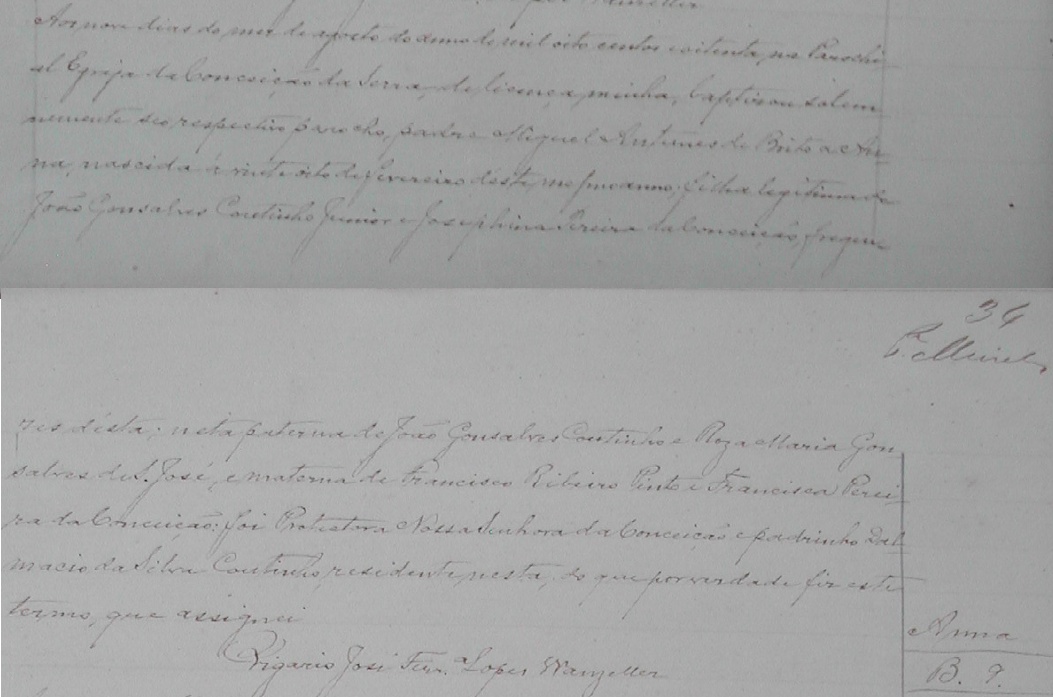 Lopes Wanzeller
Aos nove dias do mez de agosto do anno de mil oito centos e oitenta, na Parochi-
al Egreja da Conceição da Serra, de licença minha, baptisou solem-
nemente seo respectivo parocho, padre Miguel Antunes de Brito a An-
na, nascida á vinte oito de fevereiro deste mesmo anno; filha legitima de
João Gonsalves Coutinho Junior e Josephina Pereira da Conceição, fregue-
34
res désta; neta paterna de João Gonsalves Coutinho e Roza Maria Gon-
salves de S. José, e materna de Francisco Ribeiro Pinto e Francisca Perei-
ra da Conceição; foi Protectora Nossa Senhora da Conceição e padrinho Dal-
macio da Silva Coutinho, residente nesta, do que por verdade fiz este
termo, que assignei
Anna
Vigario José Ferr.ª Lopes Wanzeller
B. 9.